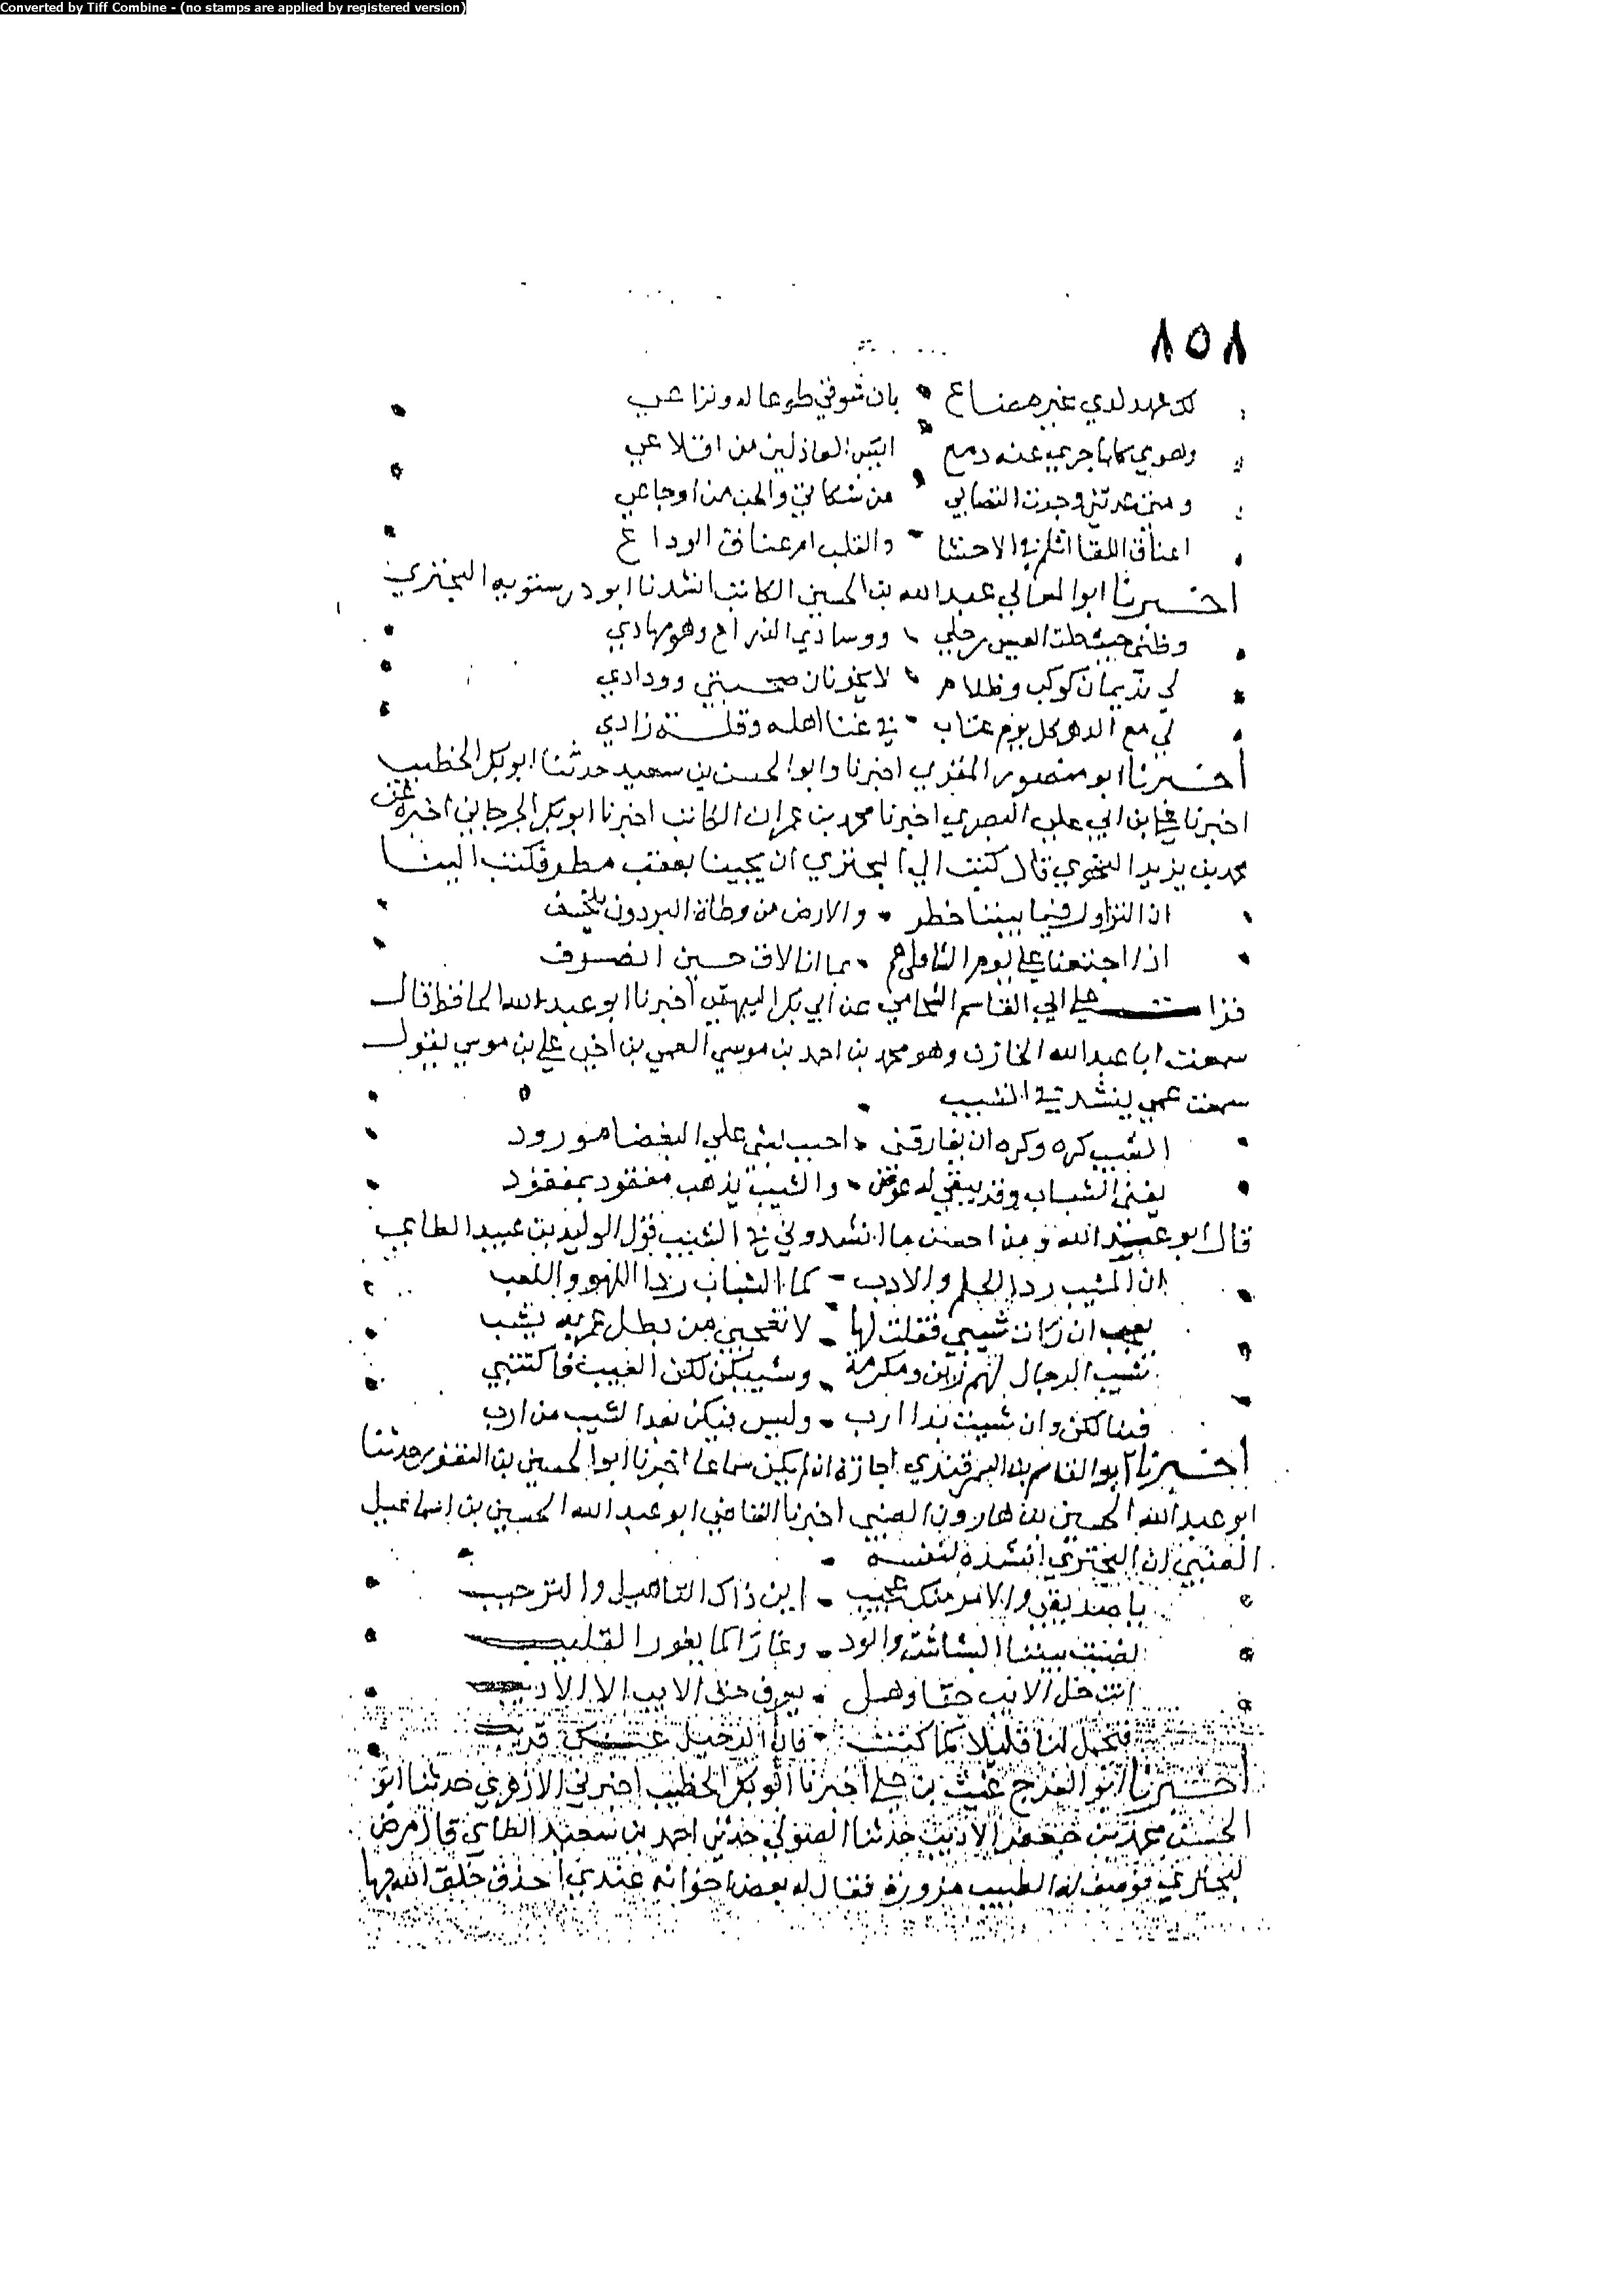 Converted by Tiff Combine - (no stamps are applied by registered version)
٨٥٨
لك عهد لدي غير مضاع بان شوقي طوعا له ونزاعي
وهوي كلما جري عنه دمع ايئس العاذلين من اقلاعي
ومتي عدتني وجدت التصابي من شكاتي والحب من اوجاعي
اعناق اللقا اثلم في الاحشا والقلب ام عناق الوداع
اخبرنا ابو المعالي عبد الله بن الحسين الكاتب انشدنا ابو درستويه البحتري
وطني حيث حلت العيس رحلي ووسادي الذراع وهو مهادي
لي نديمان كوكب وظلام لا يخونان صحبتي وودادي
لي مع الدهر كل يوم عتاب في غنا اهله وقلة زادي
أخبرنا ابو منصور المقري اخبرنا وابو الحسن بن سعيد حدثنا ابو بكر الخطيب
اخبرنا علي بن ابي علي البصري اخبرنا محمد بن عمران الكاتب اخبرنا ابو بكر الجرجاني اخبره عن
محمد بن يزيد النحوي قال كتبت الي البحتري ان يجينا بعقب مطر فكتب الينا
ان التزاور فيما بيننا خطر والارض من وطاة البردون تنخسف
اذا اجتمعنا علي يوم الشامل هم بما انا لاق حين انصرف
قرات علي ابي القاسم الشحامي عن ابي بكر البيهقي أخبرنا ابو عبد الله الحافظ قال
سمعت ابا عبد الله الخازن وهو محمد بن احمد بن موسي القمي بن اخي علي بن موسي يقول
سمعت عمي ينشد في الشيب
الشيب كره وكره ان يفارقني احبب بشي علي البغضا مورود
يفني الشباب وقد يبقي له عوض والشيب يذهب مفقود بمفقود
قال ابو عبد الله ومن احسن ما انشدوني في الشيب قول الوليد بن عبيد الطاي
ان المشيب ردا الحلم والادب كما الشباب ردا اللهو واللعب
تعجب ان رات شيبي فقلت لها لا تعجبي من يطل عمر به يشب
شيب الرجال لهم زين ومكرمة وشيبكن لكن العيب فاكتئبي
فينا لكن وان شيب بدا ارب وليس فيكن بعد الشيب من ارب
أخبرنا ابو القاسم بن السمرقندي اجازة ان لم يكن سماعا اخبرنا ابو الحسين بن النقور حدثنا
ابو عبد الله الحسين بن هارون الضبي اخبرنا القاضي ابو عبد الله الحسين بن اسماعيل
الضبي ان البحتري انشده لنفسه
يا صديقي والامر منك عجيب اين ذاك التاهيل والترحيب
نضبت بيننا البشاشة والود وغارا كما يغور القليب
انت خل الاديب حقا وهل يعرف حق الاديب الا الاديب
فتحمل لنا قليلا كما كنت فان الرحيل عنك قريب
أخبرنا ابو الفرج غيث بن علي أخبرنا ابو بكر الخطيب اخبرني الازهري حدثنا ابو
الحسن محمد بن جعفر الاديب حدثنا الصولي حدثني احمد بن سعيد الطاي قال مرض
البحتري فوصف له الطبيب مزورة فقال له بعض اخوانه عندي احذق خلق الله بها